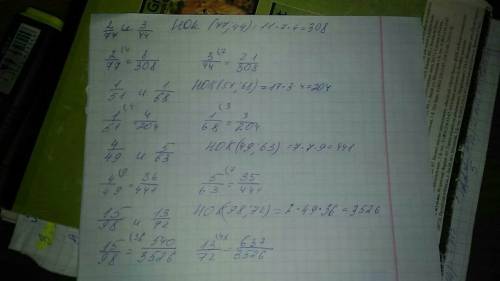 2/77 и 3/44 НОК (77,44) = 11·7·4=308
2/77 (4 = 8/308 3/44 (7 = 21/308
1/51 и 1/68 НОК(51,68)=17·3·4=204
1/51 (4 = 4/204 1/68 (3 = 3/204
4/49 и 5/63 НОК(49,63)=7·7·9=441
4/49 (9 = 36/441 5/63 (7 = 35/441
15/98 и 13/72 НОК(98,72)=2·49·36=3526
15/98 (36 = 540/3526 13/72 (49 = 637/3526